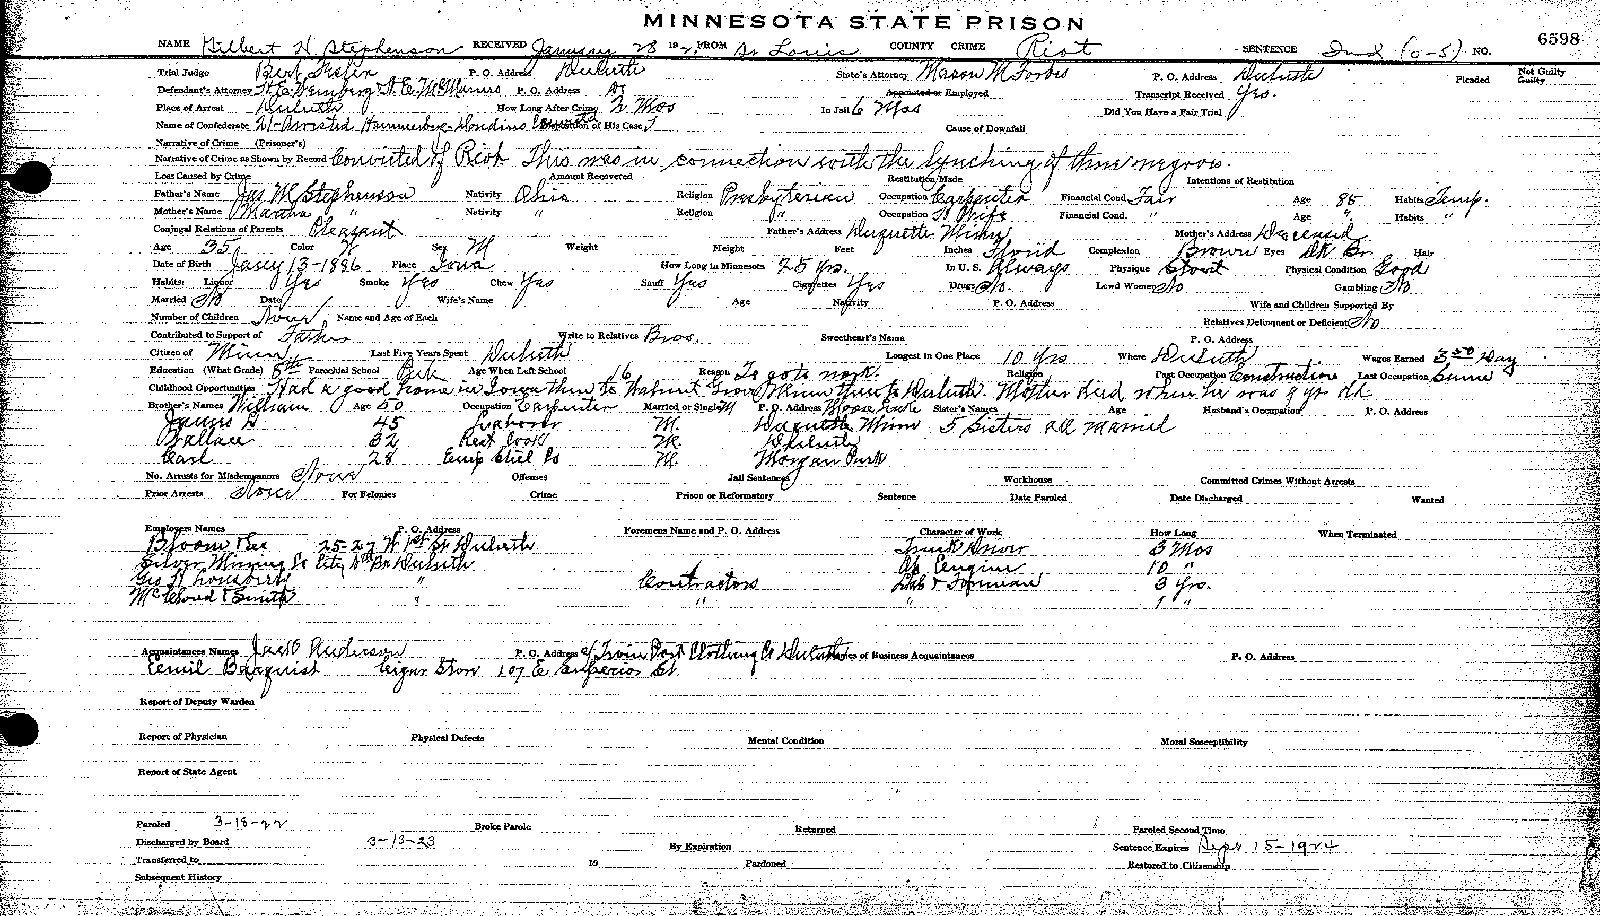 MINNESOTA STATE PRISON
NAME Gilbert H. Stephenson RECEIVED January 28 192 FROM St Louis COUNTY CRIME Riot SENTENCE Ind (0-5) NO. 6598
Trial Judge Bert Fesler P. O. Address Duluth State's Attorney Mason M Forbes P. O. Address Duluth Pleaded Not Guilty Guilty
Defendant's Attorney P. O. Address Appointed or Employed Transcript Received Yes.
Place of Arrest Duluth How Long After Crime 2 Mos In Jail 6 Mos Did You Have a Fair Trial
Name of Confederate 21-Arrested Disposition of His Case Cause of Downfall
Narrative of Crime (Prisoner's)
Narrative of Crime as Shown by Record Convicted of Riot. This was in connection with the lynching of three negroes.
Loss Caused by Crime Amount Recovered Restitution Made Intentions of Restitution
Father's Name Jas M Stephenson Nativity Ohio Religion Presbyterian Occupation Carpenter Financial Cond. Fair Age 85 Habits Temp.
Mother's Name Martha " Nativity " Religion " Occupation H Wife Financial Cond. " Age " Habits "
Conjugal Relations of Parents Pleasant Father's Address Duquette Minn Mother's Address Deceased
Age 35 Color W Sex M Weight Height Feet Inches Florid Complexion Brown Eyes Dk Br. Hair
Date of Birth 13-1886 Place Iowa How Long in Minnesota 25 yrs. In U. S. Always Physique Stout Physical Condition Good
Habits: Liquor Yes Smoke Yes Chew Yes Snuff Yes Cigarettes Yes Drugs No. Lewd Women No Gambling No
Married No Date Wife's Name Age Nativity P. O. Address Wife and Children Supported By
Number of Children None Name and Age of Each Relatives Delinquent or Deficient No
Contributed to Support of Father Write to Relatives Bros. Sweetheart's Name P. O. Address
Citizen of Minn Last Five Years Spent Duluth Longest in One Place 10 Yrs Where Duluth Wages Earned 3 50 Day
Education (What Grade) 8th Parochial School Pub Age When Left School 16 Reason To go to work. Religion Past Occupation Construction Last Occupation Same
Childhood Opportunities Had a good home in Iowa then to Walnut Grove Minn then to Duluth. Mother died when he was 9 yrs old
Brother's Names William Age 50 Occupation Carpenter Married or Single M P. O. Address Moose Lake Sister's Names Age Husband's Occupation P. O. Address
James D 45 Laborer M. Duquette Minn 5 Sisters all Married
Wallace 32 Rest Cook M. Duluth
Carl 28 Emp Steel Co M. Morgan Park
No. Arrests for Misdemeanors None Offenses Jail Sentences Workhouse Committed Crimes Without Arrests
Prior Arrests None For Felonies Crime Prison or Reformatory Sentence Date Paroled Date Discharged Wanted
Employers Names P. O. Address Foremens Name and P. O. Address Character of Work How Long When Terminated
25-27 W 1st St Duluth Truck Driver 3 Mos
Silver Mining Co Duluth Op Engine 10 "
Geo H Lounsberry " Contractors Lab & Foreman 3 Yrs.
McLeod & Smith " " " 1 "
Acquaintances Names Jack Anderson P. O. Address Clothing Co Duluth Names of Business Acquaintances P. O. Address
Emil Bergquist Cigar Store 107 E Superior St
Report of Deputy Warden
Report of Physician Physical Defects Mental Condition Moral Susceptibility
Report of State Agent
Paroled 3-18-22 Broke Parole Returned Paroled Second Time
Discharged by Board 3-13-23 By Expiration Sentence Expires Sept 15-1924
Transferred to to Pardoned Restored to Citizenship
Subsequent History